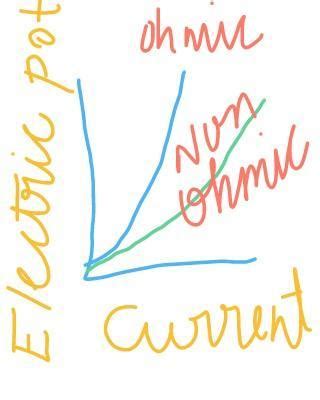 ohmic
Non
ohmic
Electric pot
Current